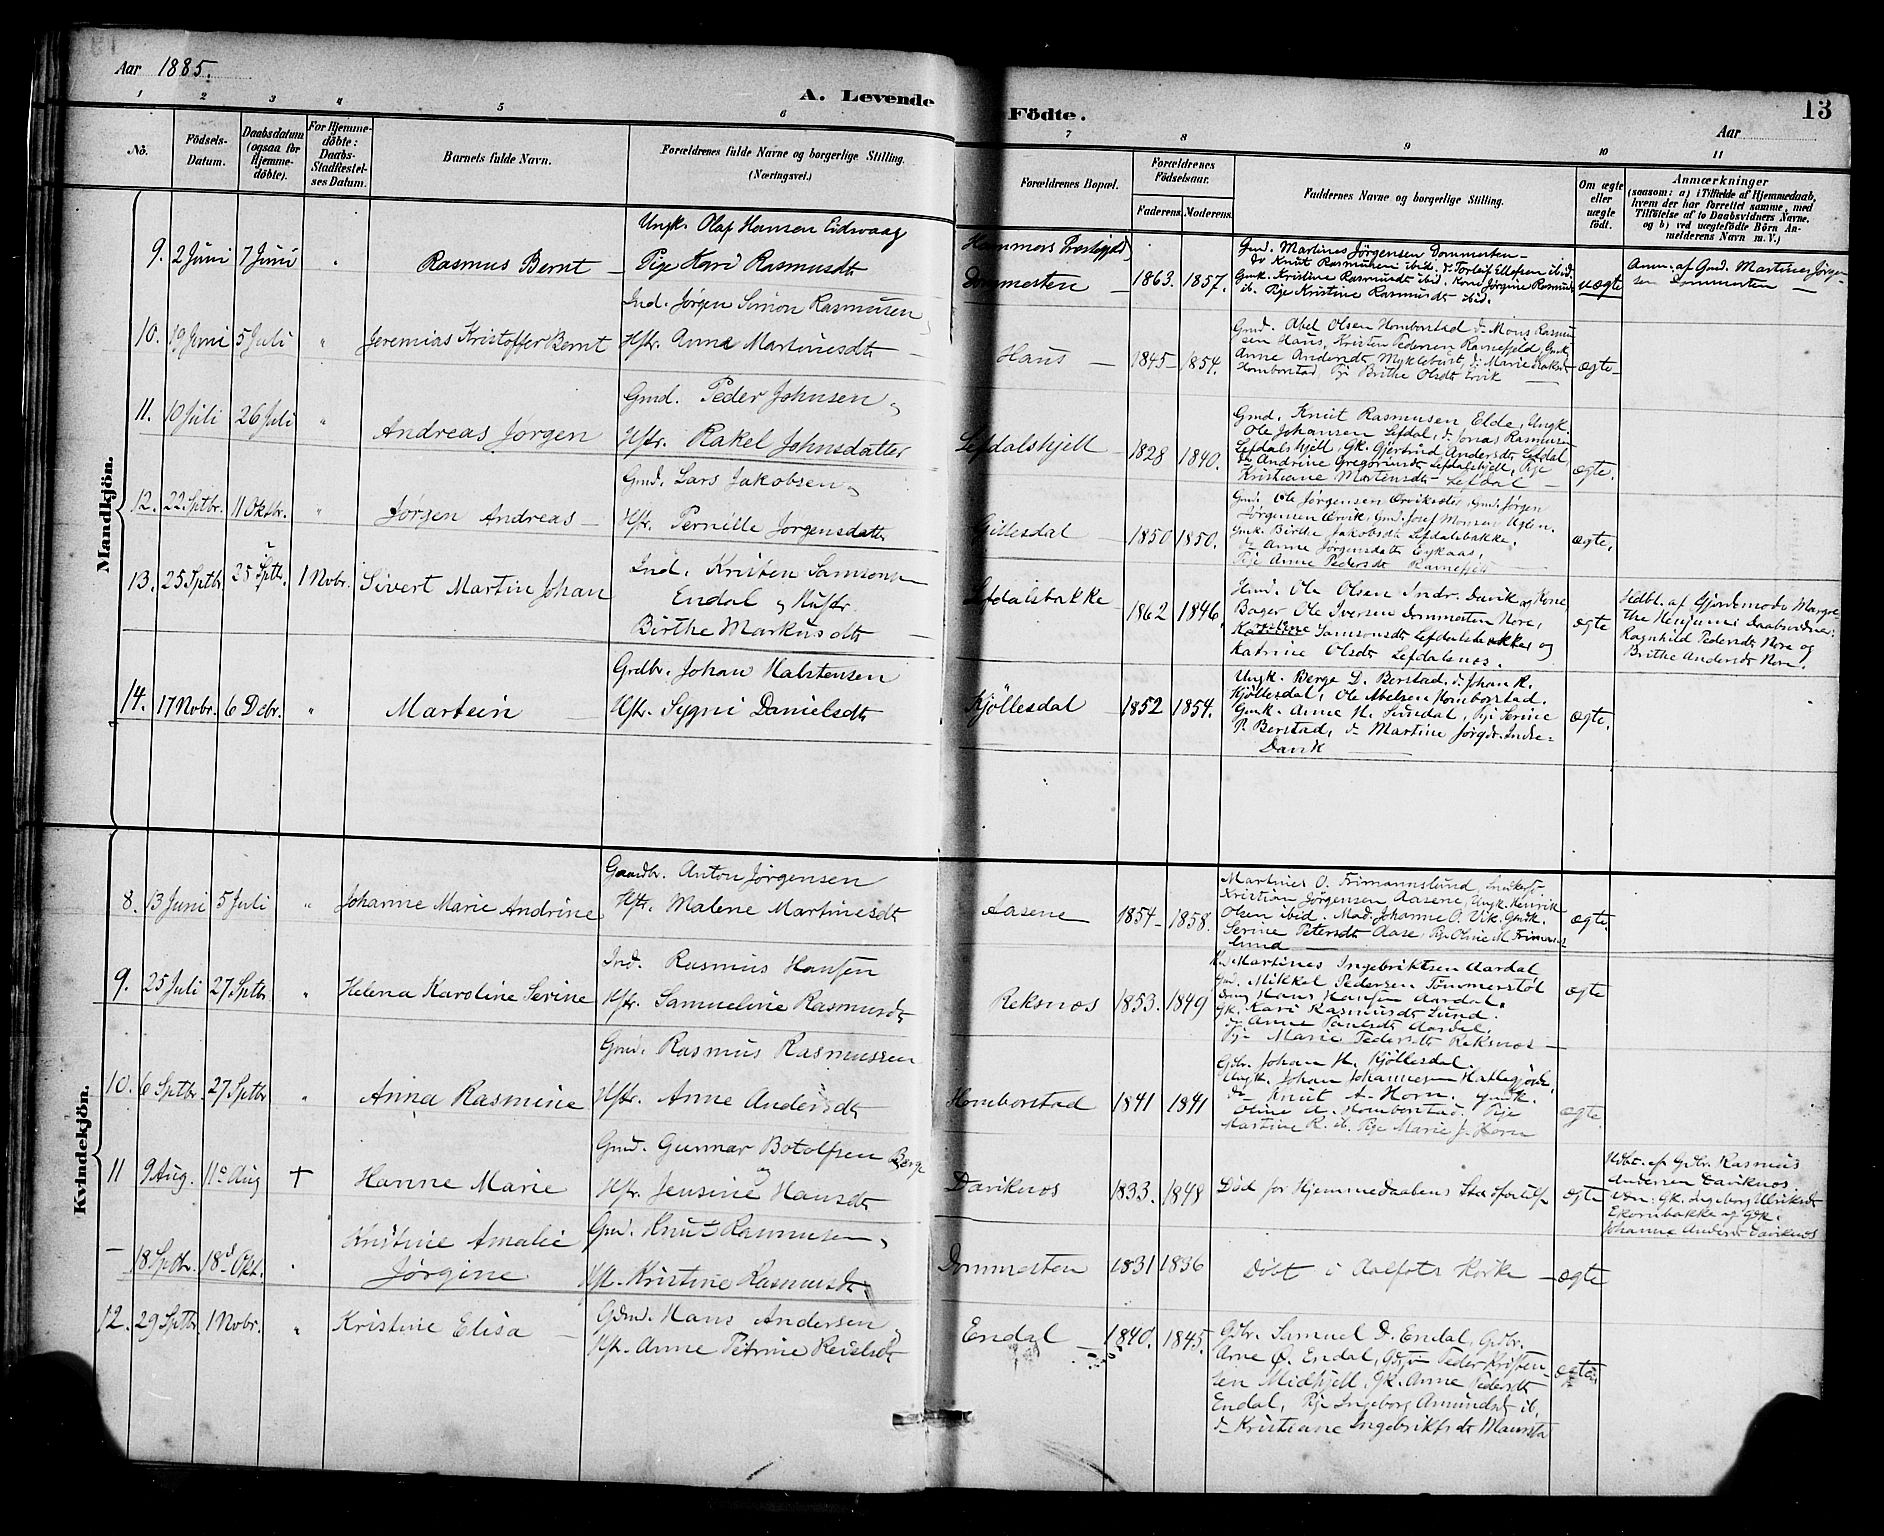 Aar 1885.
A. Levende Födte.
Aar
13
1 2 3 4 5 6 7 8 9 10 11
No.
Födsels-Datum.
Daabsdatum (ogsaa for Hjemme-döbte).
For Hjemme-döbte: Daabs-Stadfæstel-ses Datum.
Barnets fulde Navn.
Forældrenes fulde Navne og borgerlige Stilling.
(Næringsvei.)
Forældrenes Bopæl.
Forældrenes Födselsaar.
Faderens. Moderens.
Faddernes Navne og borgerlige Stilling.
Om ægte eller uægte födt.
Anmærkninger
(saasom: a) i Tilfælde af Hjemmedaab, hvem der har forrettet samme, med Tilföielse af to Daabsvidners Navne, og b) ved uægtefödte Börn An-melderens Navn m. V.)
Mandkjön.
9. 2 Juni 7 Juni " Rasmus Bernt –
Ungk. Olaf Hansen Eidsvaag
Pige Kari Rasmusdtr
Dommesten – 1863. 1857.
Gmd. Martines Jørgensen Dommesten –
do Knut Rasmussen ibid. do Torleif Ellefsen ibid.
Gmk. Kristine Rasmusdt ibid. Kone Jørgine Rasmusdt
ib. Pige Kristine Rasmusdt ibid.
uægte
Anm. af Gmd. Martines Jørgen-
sen Dommesten –
10. 19 Juni 5 Juli " Jeremias Kristoffer Bernt
Ind. Jørgen Simon Rasmussen
Hstr. Anne Martinesdtr
Haus – 1845 – 1854.
Gmd. Abel Olsen Homborstad do Mons Rasmus
sen Haus, Kristen Pedersen Ravnefjeld, Gmk.
Anne Andersdt Myklebust, do Marie
Homborstad Pige Brithe Olsdt Ervik –
ægte –
11. 10 Juli 26 Juli " Andreas Jørgen
Gmd. Peder Johnsen og
Hstr. Rakel Johnsdatter
Lefdalshjell – 1828 1840.
Gmd. Knut Rasmusen Elde, Ungk.
Ole Johansen Lefdal, do Jonas Rasmussen
Lefdalshjell, Gk. Gjertrud Andersdt Lefdal,
do Andrine Gregoriusdt Lefdalshjell, Pige
Kristiane Mortensdt Lefdal –
ægte.
12. 22 Sptbr. 11 Oktbr. " Jørgen Andreas –
Gmd. Lars Jakobsen og
Hstr. Pernille Jørgensdatter
Gillesdal – 1850 1850.
Gmd. Ole Jørgensen , Gmd. Jørgen
Jørgensen Ervik, Gmd. Josef Monsen
Gmk. Birthe Jakobsdt Lefdalsbakke.
do Anne Jørgensdatter Eykaas,
Pige Anne Pedersdt Ravnefjeld –
ægte.
13. 25 Sptbr. 25 Sptbr. 1 Novbr. Sivert Martin Johan
Ind. Kristen Samsonsen
Endal og Hustr.
Birthe Markusdtr
Lefdalsbakke 1862 1846.
Hmd. Ole Olsen Indr. Davik og Kone
Bager Ole Iversen Dommesten Nore,
Samsonsdt Lefdalsbakke og
Katrine Olsdt Lefdalsnes.
ægte
Hdbt. af Gjordemoder Margre-
the Henjum: Daabsvidner:
Ragnhild Pedersdt Nore og
Brithe Andersdt Nore.
14. 17 Novbr. 6 Dcbr. " Martein
Grdbr. Johan Halstensen
Hstr. Sygni Danielsdtr
Kjöllesdal 1852 1854.
Ungk. Berge L. Berstad, do Johan R.
Kjöllesdal, Ole Abelsen Homborstad.
Gmk. Anne H. Sundal, Pige Serine
P. Berstad, do Martine Jørgdr. Indre-
Davik –
ægte.
Kvindekjön.
8. 13 Juni 5 Juli " Johanne Marie Andrine
Gaardbr. Anton Jørgensen
Hstr. Malene Martinesdtr
Aasene – 1854 – 1858.
Martines O. Frimannslund,
Kristian Jørgensen Aasene, Ungk. Henrik
Olsen ibid. Mad. Johanne O. Vik. Gmk.
Serine Petersdt Aase, Pige Oline M. Frimans-
lund –
ægte.
9. 25 Juli 27 Sptbr " Helena Karoline Serine
Ind. Rasmus Hansen
Hstr. Samueline Rasmusdt
Reksnes 1853. 1849
Martines Ingebriktsen Aardal
Gmd. Mikkel Pedersen Tömmerstöl
Hans Hansen Aardal.
Gk. Kari Rasmusdt Lund.
do Anne Paulsdt Aardal,
Pige Marie Pedersdt Reksnes –
ægte
10. 6 Sptbr 27 Sptbr " Anna Rasmine
Gmd. Rasmus Rasmussen
Hstr. Anne Andersdtr
Homborstad 1841 1841
Gbr. Johan H. Kjöllesdal,
Ungk. Johan Johannesen Hatlegjerde,
do Knut A. Horn. Gmk.
Oline A. Homborstad. Pige
Martine R. ib. Pige Marie J. Horn
ægte.
11 9 Aug. 11 Aug + Hanne Marie
Gmd. Gunnar Botolfsen Berge
og
Hstr. Jensine Hansdtr
Daviknes 1833. 1848
Död för Hjemmedaabens Stadfæstelse
ægte
Hdbt. af Gdbr. Rasmus
Andersen Daviknes
Vdn: Gk. Ingeborg Ulriksdt
Ekornbakke og Gdk.
Johanne Andersdt Daviknes
– 18 Sptbr. 18 Okt. " Kristine Amalie
Jørgine
Gmd. Knut Rasmussen og
Hst. Kristine Rasmusdtr
Dommesten 1831 1836
Döbt i Aalfots Kirke –
ægte
12. 29 Sptbr. 1 Novbr. " Kristine Elisa –
Gdmd. Hans Andersen og
Hstr. Anne Petrine Reielsdt
Endal – 1840. 1845.
Gdbr. Samuel D. Endal, Gdbr.
Arne Ø. Endal, Peder Kristen-
sen Midhjell, Gk. Anne Pedersdt
Endal, Pige Ingeborg Amundsdt ib,
do Kristiane Ingebriktsdt Maursta
ægte